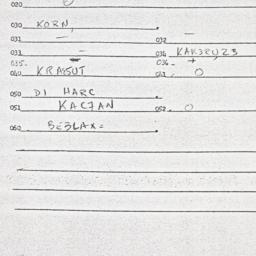 020 O
030 KORN,
031 — 032 —
033 — 034
035. 036. +
040 KRAJSUT 041. O
050 DI HARC
051 KACZAN 052. O
060